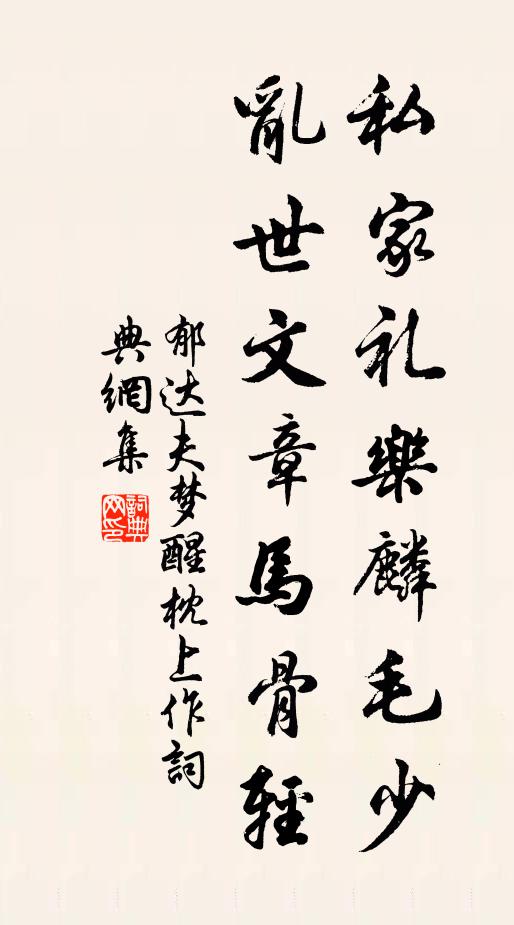 私家礼樂麟毛少
亂世文章馬骨輕
郁达夫梦醒枕上作詞
典網集
詞典網印